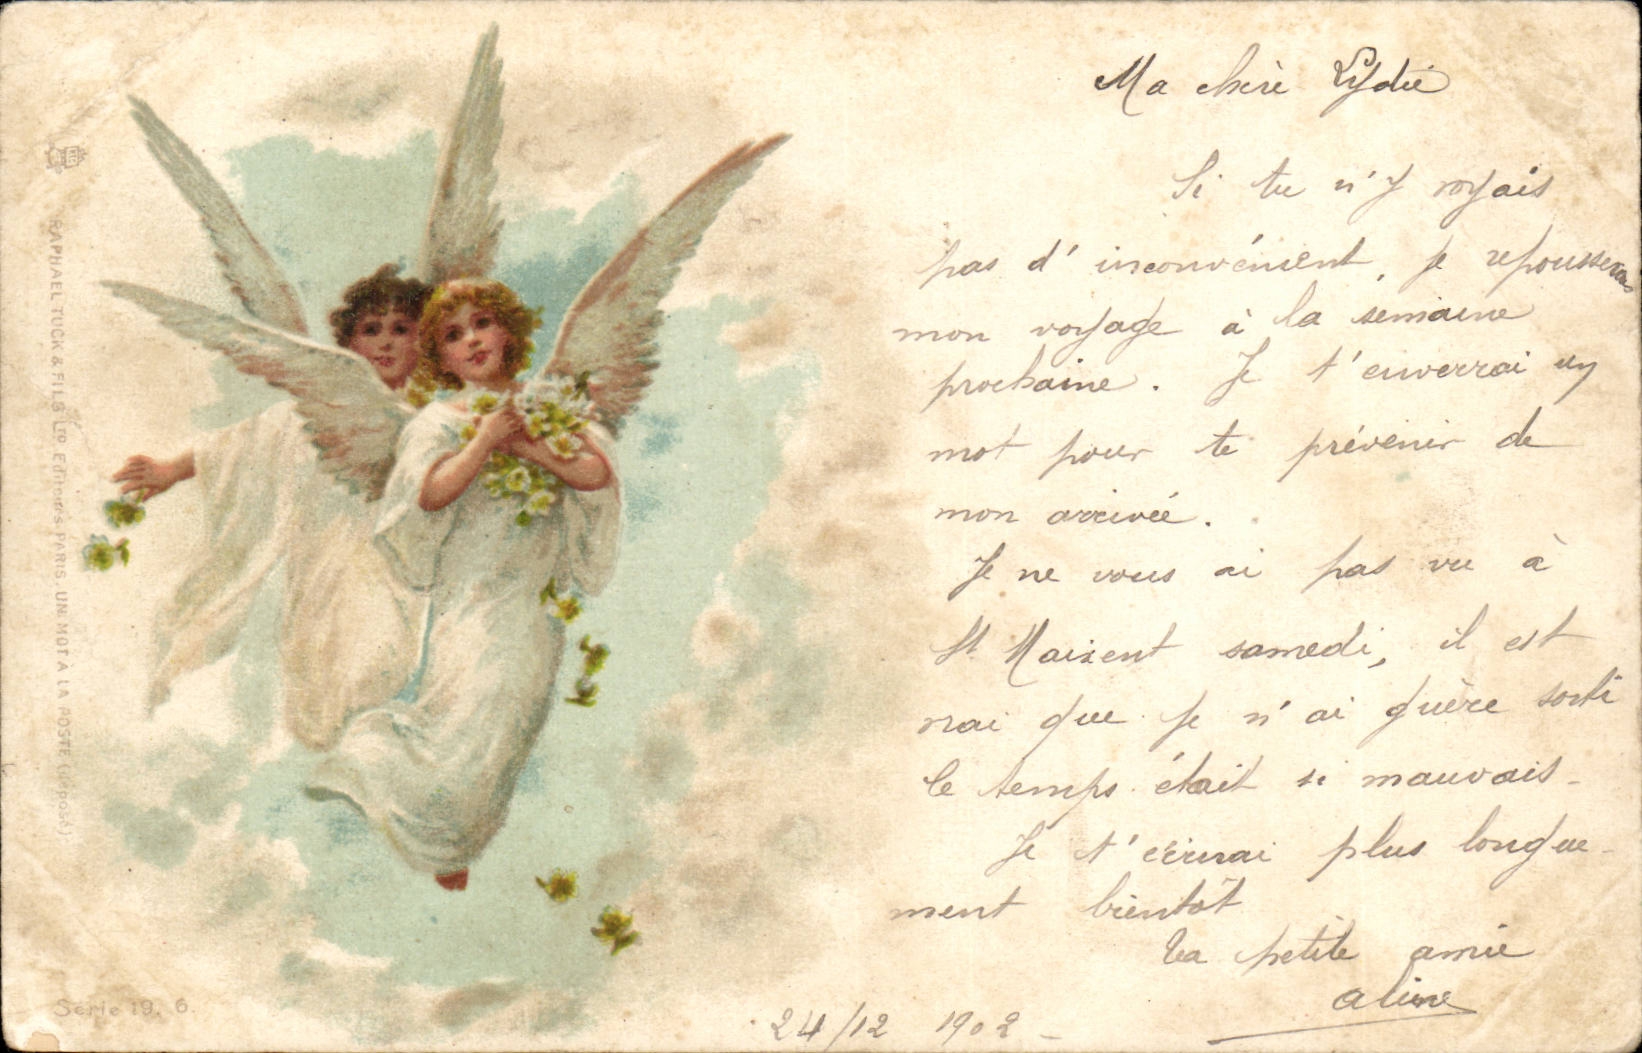 Ma chère Lydie
Si tu n'y voyais
pas d'inconvénient, je repousserais
mon voyage à la semaine
prochaine. Je t'enverrai un
mot pour te prévenir de
mon arrivée.
Je ne vous ai pas vu à
St Maixent samedi, il est
vrai que je n'ai guère sorti
le temps était si mauvais-
Je t'écrirai plus longue-
ment bientôt
Ta petite amie
Aline
24/12 1902-
RAPHAEL TUCK & FILS LTD. Editeurs PARIS UN MOT À LA POSTE (Déposé)
Série 19. 6.